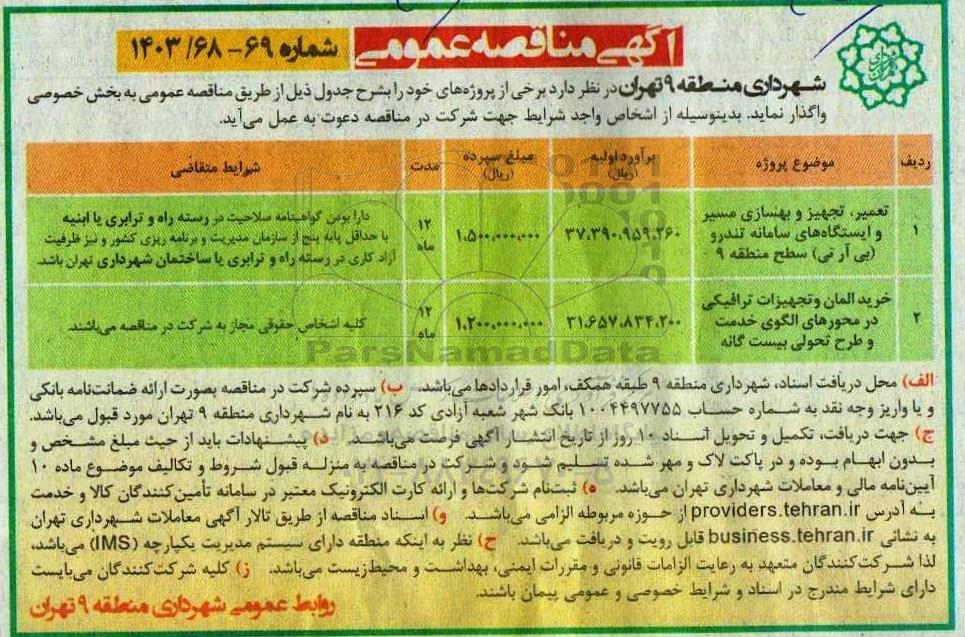 آگهی مناقصه عمومی
شماره ۶۹ - ۶۸/ ۱۴۰۳
شهرداری منطقه ۹ تهران در نظر دارد برخی از پروژه‌های خود را بشرح جدول ذیل از طریق مناقصه عمومی به بخش خصوصی
واگذار نماید. بدینوسیله از اشخاص واجد شرایط جهت شرکت در مناقصه دعوت به عمل می‌آید.
ردیف موضوع پروژه برآورد اولیه (ریال) مبلغ سپرده (ریال) مدت شرایط متقاضی
۱ تعمیر، تجهیز و بهسازی مسیر
و ایستگاه‌های سامانه تندرو
(بی آر تی) سطح منطقه ۹
۳۷.۳۹۰.۹۵۹.۲۶۰
۱.۵۰۰.۰۰۰.۰۰۰
۱۲
ماه
دارا بودن گواهینامه صلاحیت در رسته راه و ترابری یا ابنیه
با حداقل پایه پنج از سازمان مدیریت و برنامه ریزی کشور و نیز ظرفیت
آزاد کاری در رسته راه و ترابری یا ساختمان شهرداری تهران باشد.
۲ خرید المان وتجهیزات ترافیکی
در محورهای الگوی خدمت
و طرح تحولی بیست گانه
۳۱.۶۵۷.۸۳۴.۲۰۰
۱.۲۰۰.۰۰۰.۰۰۰
۱۲
ماه
کلیه اشخاص حقوقی مجاز به شرکت در مناقصه می‌باشند.
ParsNamadData
الف) محل دریافت اسناد، شهرداری منطقه ۹ طبقه همکف، امور قراردادها می‌باشد. ب) سپرده شرکت در مناقصه بصورت ارائه ضمانت‌نامه بانکی
و یا واریز وجه نقد به شماره حساب ۱۰۰۴۴۹۷۷۵۵ بانک شهر شعبه آزادی کد ۲۱۶ به نام شهرداری منطقه ۹ تهران مورد قبول می‌باشد.
ج) جهت دریافت، تکمیل و تحویل اسناد ۱۰ روز از تاریخ انتشار آگهی فرصت می‌باشد. د) پیشنهادات باید از حیث مبلغ مشخص و
بدون ابهام بوده و در پاکت لاک و مهر شده تسلیم شود و شرکت در مناقصه به منزله قبول شروط و تکالیف موضوع ماده ۱۰
آیین‌نامه مالی و معاملات شهرداری تهران می‌باشد. ه) ثبت‌نام شرکت‌ها و ارائه کارت الکترونیک معتبر در سامانه تأمین‌کنندگان کالا و خدمت
به آدرس providers.tehran.ir از حوزه مربوطه الزامی می‌باشد. و) اسناد مناقصه از طریق تالار آگهی معاملات شهرداری تهران
به نشانی business.tehran.ir قابل رویت و دریافت می‌باشد. ح) نظر به اینکه منطقه دارای سیستم مدیریت یکپارچه (IMS) می‌باشد،
لذا شرکت‌کنندگان متعهد به رعایت الزامات قانونی و مقررات ایمنی، بهداشت و محیط‌زیست می‌باشد. ز) کلیه شرکت‌کنندگان می‌بایست
دارای شرایط مندرج در اسناد و شرایط خصوصی و عمومی پیمان باشند.
روابط عمومی شهرداری منطقه ۹ تهران